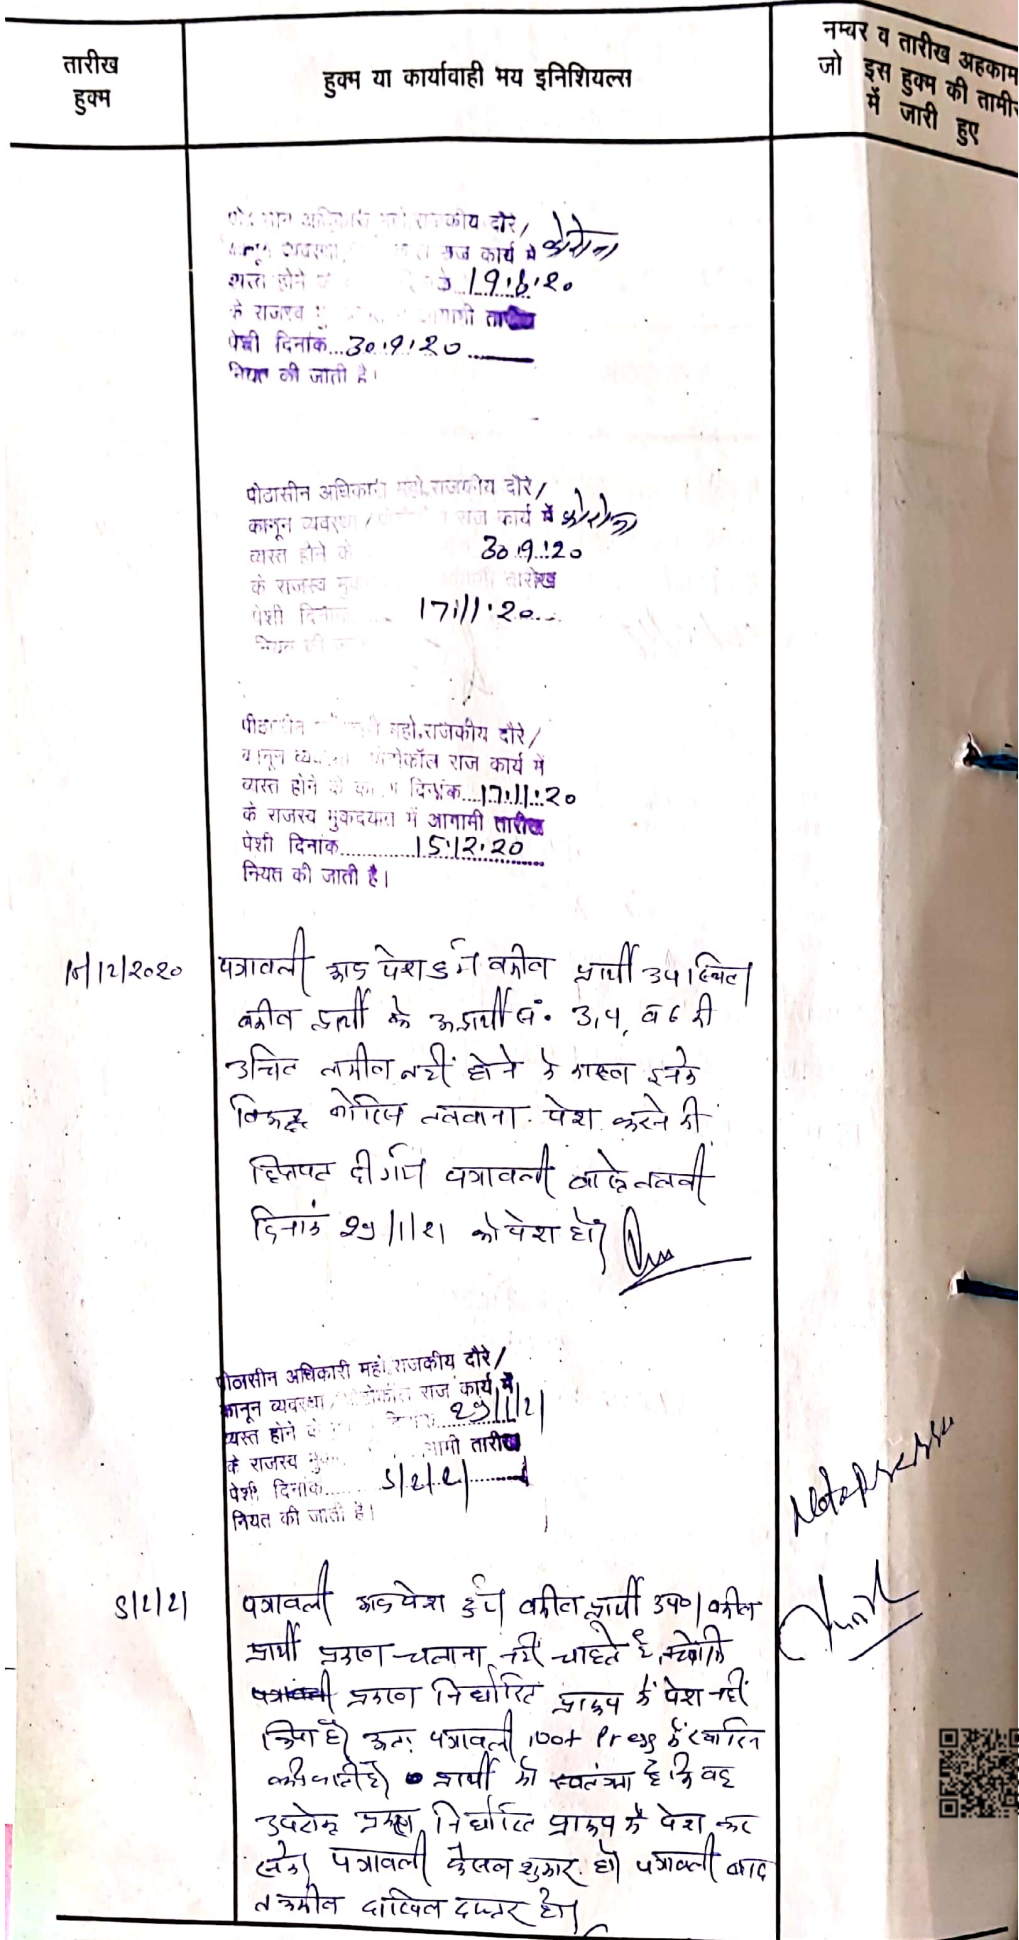 तारीख
हुक्म
हुक्म या कार्यावाही मय इनिशियल्स
नम्बर व तारीख अहकाम
जो इस हुक्म की तामील
में जारी हुए
राजकीय दौरे/
राज कार्य में कोरोना
व्यस्त होने के 19.8.20
के राजस्व आगामी तारीख
पेशी दिनांक...30.9.20
नियत की जाती है।
पीठासीन अधिकारी महो.राजकीय दौरे/
कानून व्यवस्था / राज कार्य में कोरोना
व्यस्त होने के 30.9.20
के राजस्व तारीख
पेशी दिनांक 17.11.20...
नियत की
पीठासीन महो.राजकीय दौरे/
कानून व्यवस्था प्रोटोकॉल राज कार्य में
व्यस्त होने के कारण दिनांक...17.11.20
के राजस्व मुकदमात में आगामी तारीख
पेशी दिनांक.......15.12.20
नियत की जाती है।
15/12/2020
पत्रावली आज पेश हुई वकील प्रार्थी उपस्थित
वकील प्रार्थी के अप्रार्थी सं. 3,4, व 6 की
उचित तामील नहीं होने के कारण इनके
विरूद्ध नोटिस तलवाना पेश करने की
हिदायत दी गई पत्रावली वास्ते तलवी
दिनांक 29/1/21 को पेश हो
पीठासीन अधिकारी महो.राजकीय दौरे/
कानून व्यवस्था / प्रोटोकॉल राज कार्य में
व्यस्त होने के दिनांक 29/1/21
के राजस्व आगामी तारीख
पेशी दिनांक........5/2/21
नियत की जाती है।
5/2/21
पत्रावली आज पेश हुई वकील प्रार्थी उप०/वकील
प्रार्थी प्रकरण चलाना नहीं चाहते है, क्योंकि
पत्रावली प्रकरण निर्धारित प्रारूप में पेश नहीं
किया है। अतः पत्रावली not Press में खारिज
की जाती है। प्रार्थी को स्वतंत्रता है कि वह
उपरोक्त प्रकरण निर्धारित प्रारूप में पेश कर
सके। पत्रावली फैसल शुमार हो पत्रावली बाद
तकमील दाखिल दफ्तर हो।